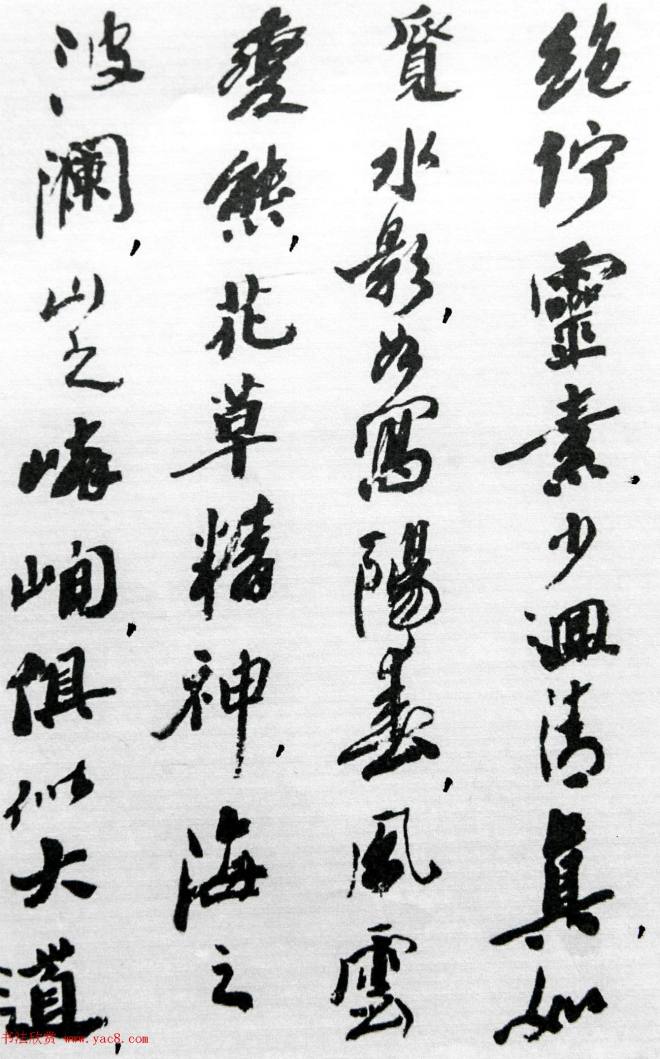 絶佇靈素,少迴清真,如
覓水影,如寫陽春,風雲
變態,花草精神,海之
波瀾,山之嶙峋,俱似大道,
书法欣赏 www.yac8.com